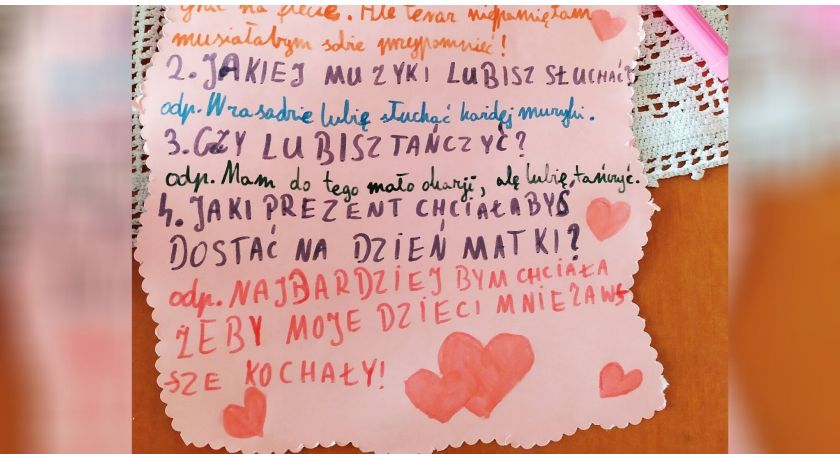 grać na flecie. Ale teraz niepamiętam
musiałabym sobie przypomnieć!
2. JAKIEJ MUZYKI LUBISZ SŁUCHAĆ?
odp. W zasadzie lubię słuchać każdej muzyki.
3. CZY LUBISZ TAŃCZYĆ?
odp. Mam do tego mało okazji, ale lubię tańczyć.
4. JAKI PREZENT CHCIAŁABYŚ
DOSTAĆ NA DZIEŃ MATKI?
odp. NAJBARDZIEJ BYM CHCIAŁA
ŻEBY MOJE DZIECI MNIE ZAW
SZE KOCHAŁY!